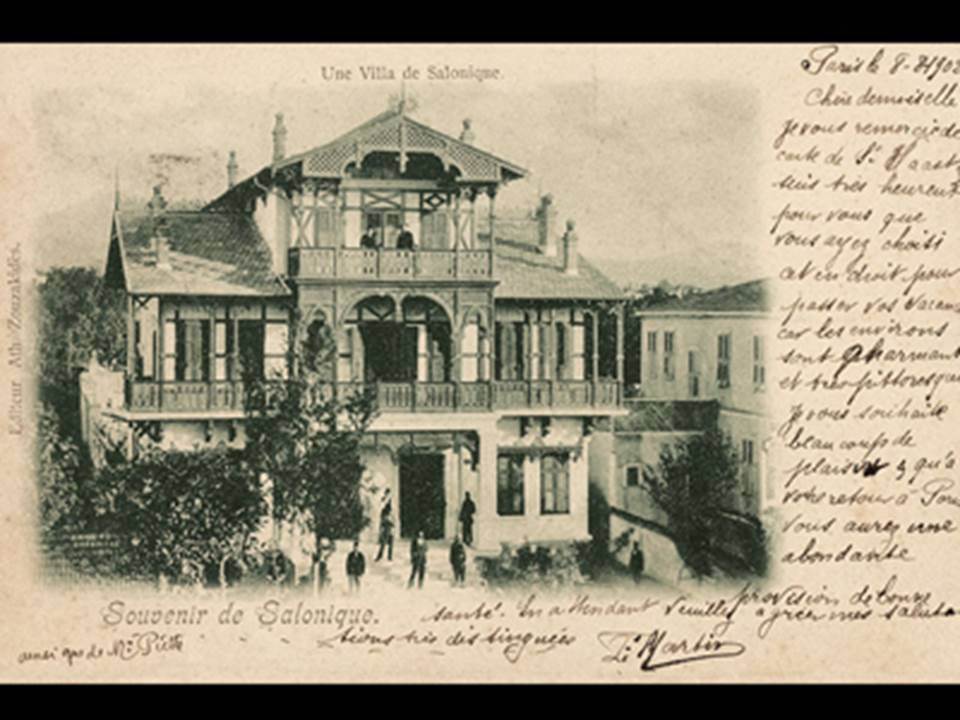 Une Villa de Salonique.
Editeur Ath. Zouzakidès.
Souvenir de Salonique.
Paris le 8-
Chère demoiselle
je vous remercie de
carte de St
suis très heureux
pour vous que
vous ayez choisi
cet endroit pour
passer vos vacan
car les environs
sont charmant
et très pittoresque
Je vous souhaite
beaucoup de
plaisir & qu'à
votre retour à Paris
vous aurez une
abondante
provision de bonne
santé. En attendant veuillez agréer mes saluta
tions très distinguées
Martin
ainsi que de Mr